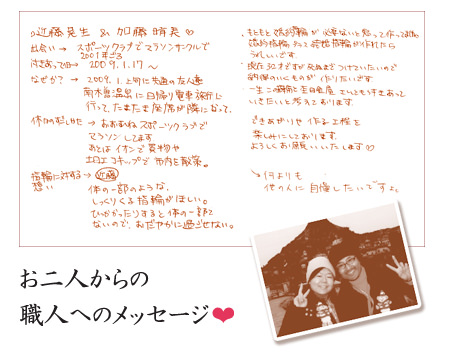 近藤 晃生 & 加藤 晴美 ♡
出会い → スポーツクラブでマラソンサークルで
2001年ごろ
付きあって日→ 2009.1.17〜
なぜか? → 2009.1上旬に共通の友人妻
南木曽温泉に日帰り電車旅行に
行って、たまたま座席が隣になって。
休日の過しかた → おおむねスポーツクラブで
マラソンしてます
あとはイオンで買物や
土日エコキップで市内を散策。
指輪に対する → 近藤
想い
体の一部のような、
しっくりくる指輪がほしい。
ひっかかったりすると体の一部で
ないので、おだやかに過ごせない。
・もともと婚約指輪が必要ないと思って
婚約指輪 結婚指輪が作れたら
うれしいです
・現在32才ですが死ぬまでつけていたいので
納得のいくものが作りたいです
一生この指輪と毎日会産
いきたいと考えております。
できあがりや作る工程を
楽しみにしております。
よろしくお願いいたします♡
↘何よりも
他の人に自慢したいですよ。
お二人からの
職人へのメッセージ❤